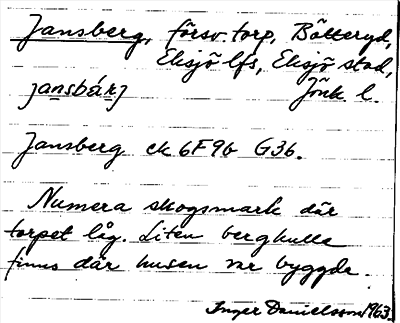 Jansberg, försv. torp, Bötteryd,
Eksjö lfs, Eksjö stad,
jansbárj Jönk. l.
Jansberg ek 6F9b G36.
Numera skogsmark där
torpet låg. Liten bergkulle
finns där husen var byggda.
Inger Danielsson 1963.